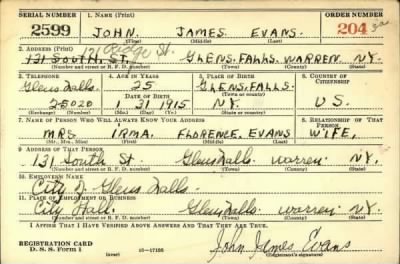 SERIAL NUMBER 1. NAME (Print) ORDER NUMBER
2599 JOHN. JAMES. EVANS. 204
(First) (Middle) (Last)
121 Ridge St.
2. ADDRESS (Print)
121 SOUTH. ST. GLENS. FALLS. WARREN. NY.
(Number and street or R. F. D. number) (Town) (County) (State)
3. TELEPHONE 4. AGE IN YEARS 5. PLACE OF BIRTH 6. COUNTRY OF CITIZENSHIP
Glens Falls 25. GLENS. FALLS.
DATE OF BIRTH (Town or county)
25020 1 31 1915 NY. U S.
(Exchange) (Number) (Mo.) (Day) (Yr.) (State or country)
7. NAME OF PERSON WHO WILL ALWAYS KNOW YOUR ADDRESS 8. RELATIONSHIP OF THAT PERSON
MRS IRMA. FLORENCE. EVANS WIFE.
(Mr., Mrs., Miss) (First) (Middle) (Last)
9. ADDRESS OF THAT PERSON
131 South St. Glens Falls. Warren NY.
(Number and street or R. F. D. number) (Town) (County) (State)
10. EMPLOYER'S NAME
City of Glens Falls.
11. PLACE OF EMPLOYMENT OR BUSINESS
City Hall. Glens Falls. Warren NY.
(Number and street or R. F. D. number) (Town) (County) (State)
I AFFIRM THAT I HAVE VERIFIED ABOVE ANSWERS AND THAT THEY ARE TRUE.
REGISTRATION CARD
D. S. S. Form 1 (over) 16-17105 John James Evans
(Registrant's signature)